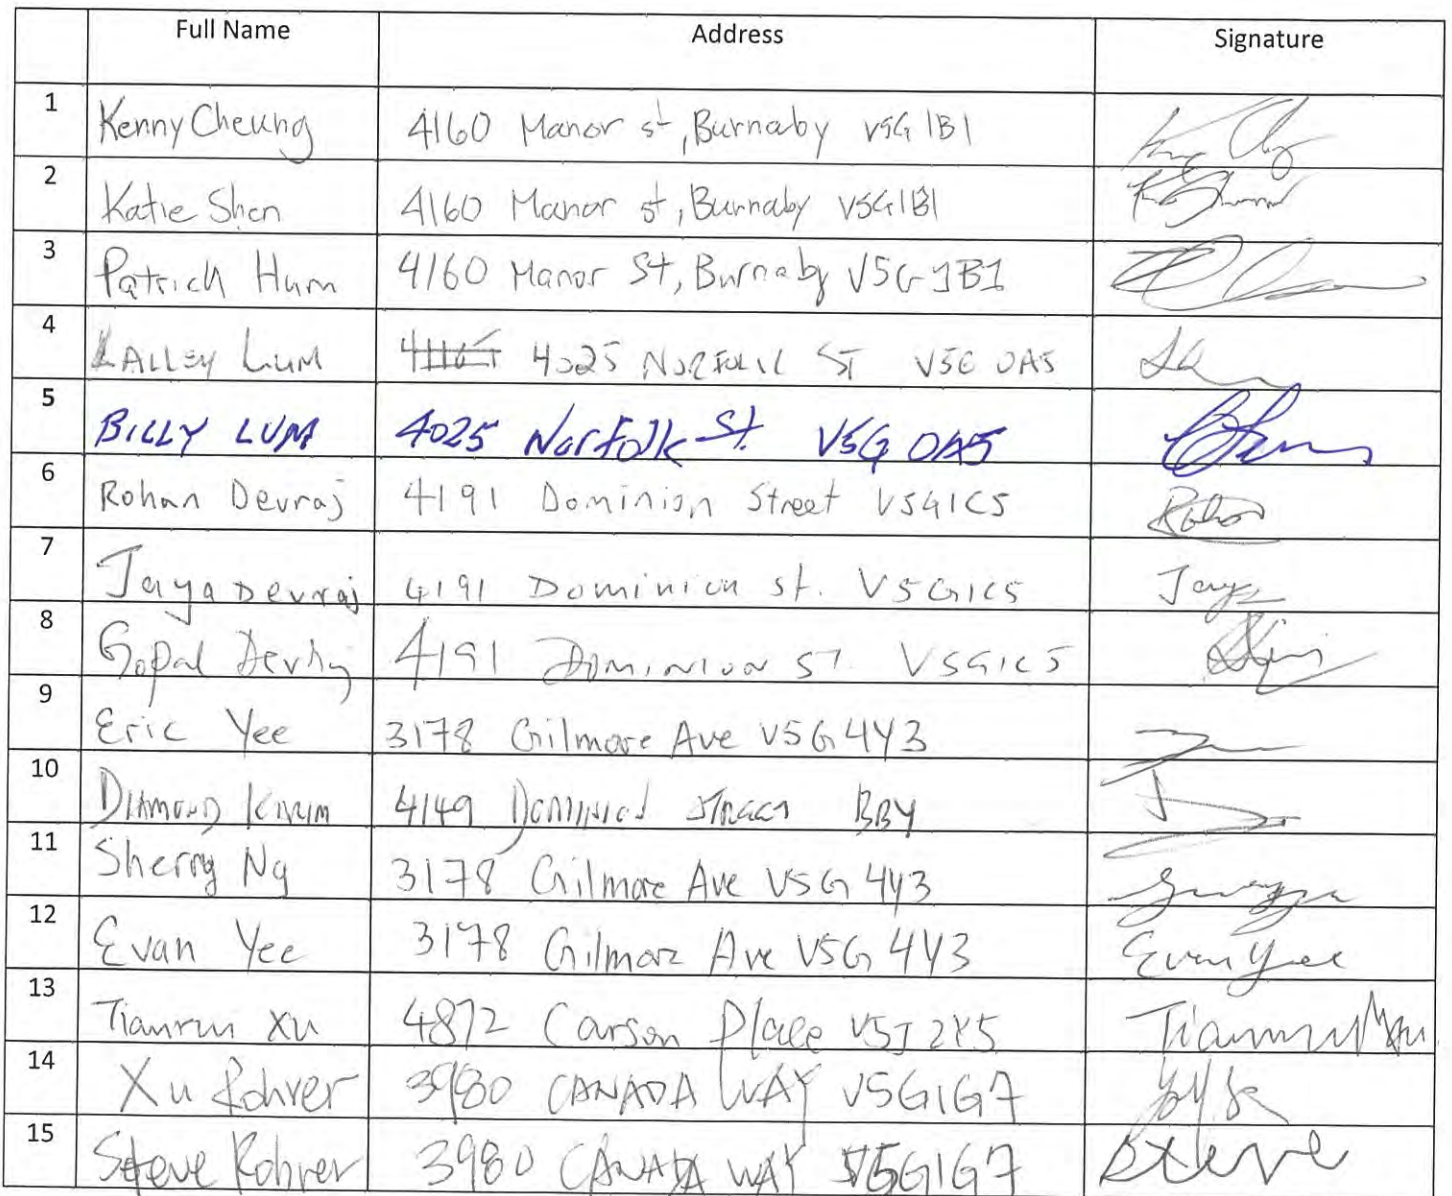 Full Name Address Signature
1 Kenny Cheung 4160 Manor st, Burnaby V5G 1B1
2 Katie Shen 4160 Manor st, Burnaby V5G1B1
3 Patrick Hum 4160 Manor St, Burnaby V5G 1B1
4 LALLEY LUM 4025 NORFOLK ST V5G 0A5
5 BILLY LUM 4025 Norfolk St. V5G 0A5
6 Rohan Devraj 4191 Dominion Street V5G1C5 Rohan
7 Jaya Devraj 4191 Dominion st. V5G1C5 Jaya
8 Gopal Devraj 4191 DOMINION ST. V5G1C5
9 Eric Yee 3178 Gilmore Ave V5G 4Y3
10 DIAMOND 4149 DOMINION STREET BBY
11 Sherry Ng 3178 Gilmore Ave V5G 4Y3
12 Evan Yee 3178 Gilmore Ave V5G 4Y3 Evan Yee
13 Tianrui Xu 4872 Carson Place V5J 2Y5
14 Xu Rohrer 3980 CANADA WAY V5G1G7
15 Steve Rohrer 3980 CANADA WAY V5G1G7 Steve